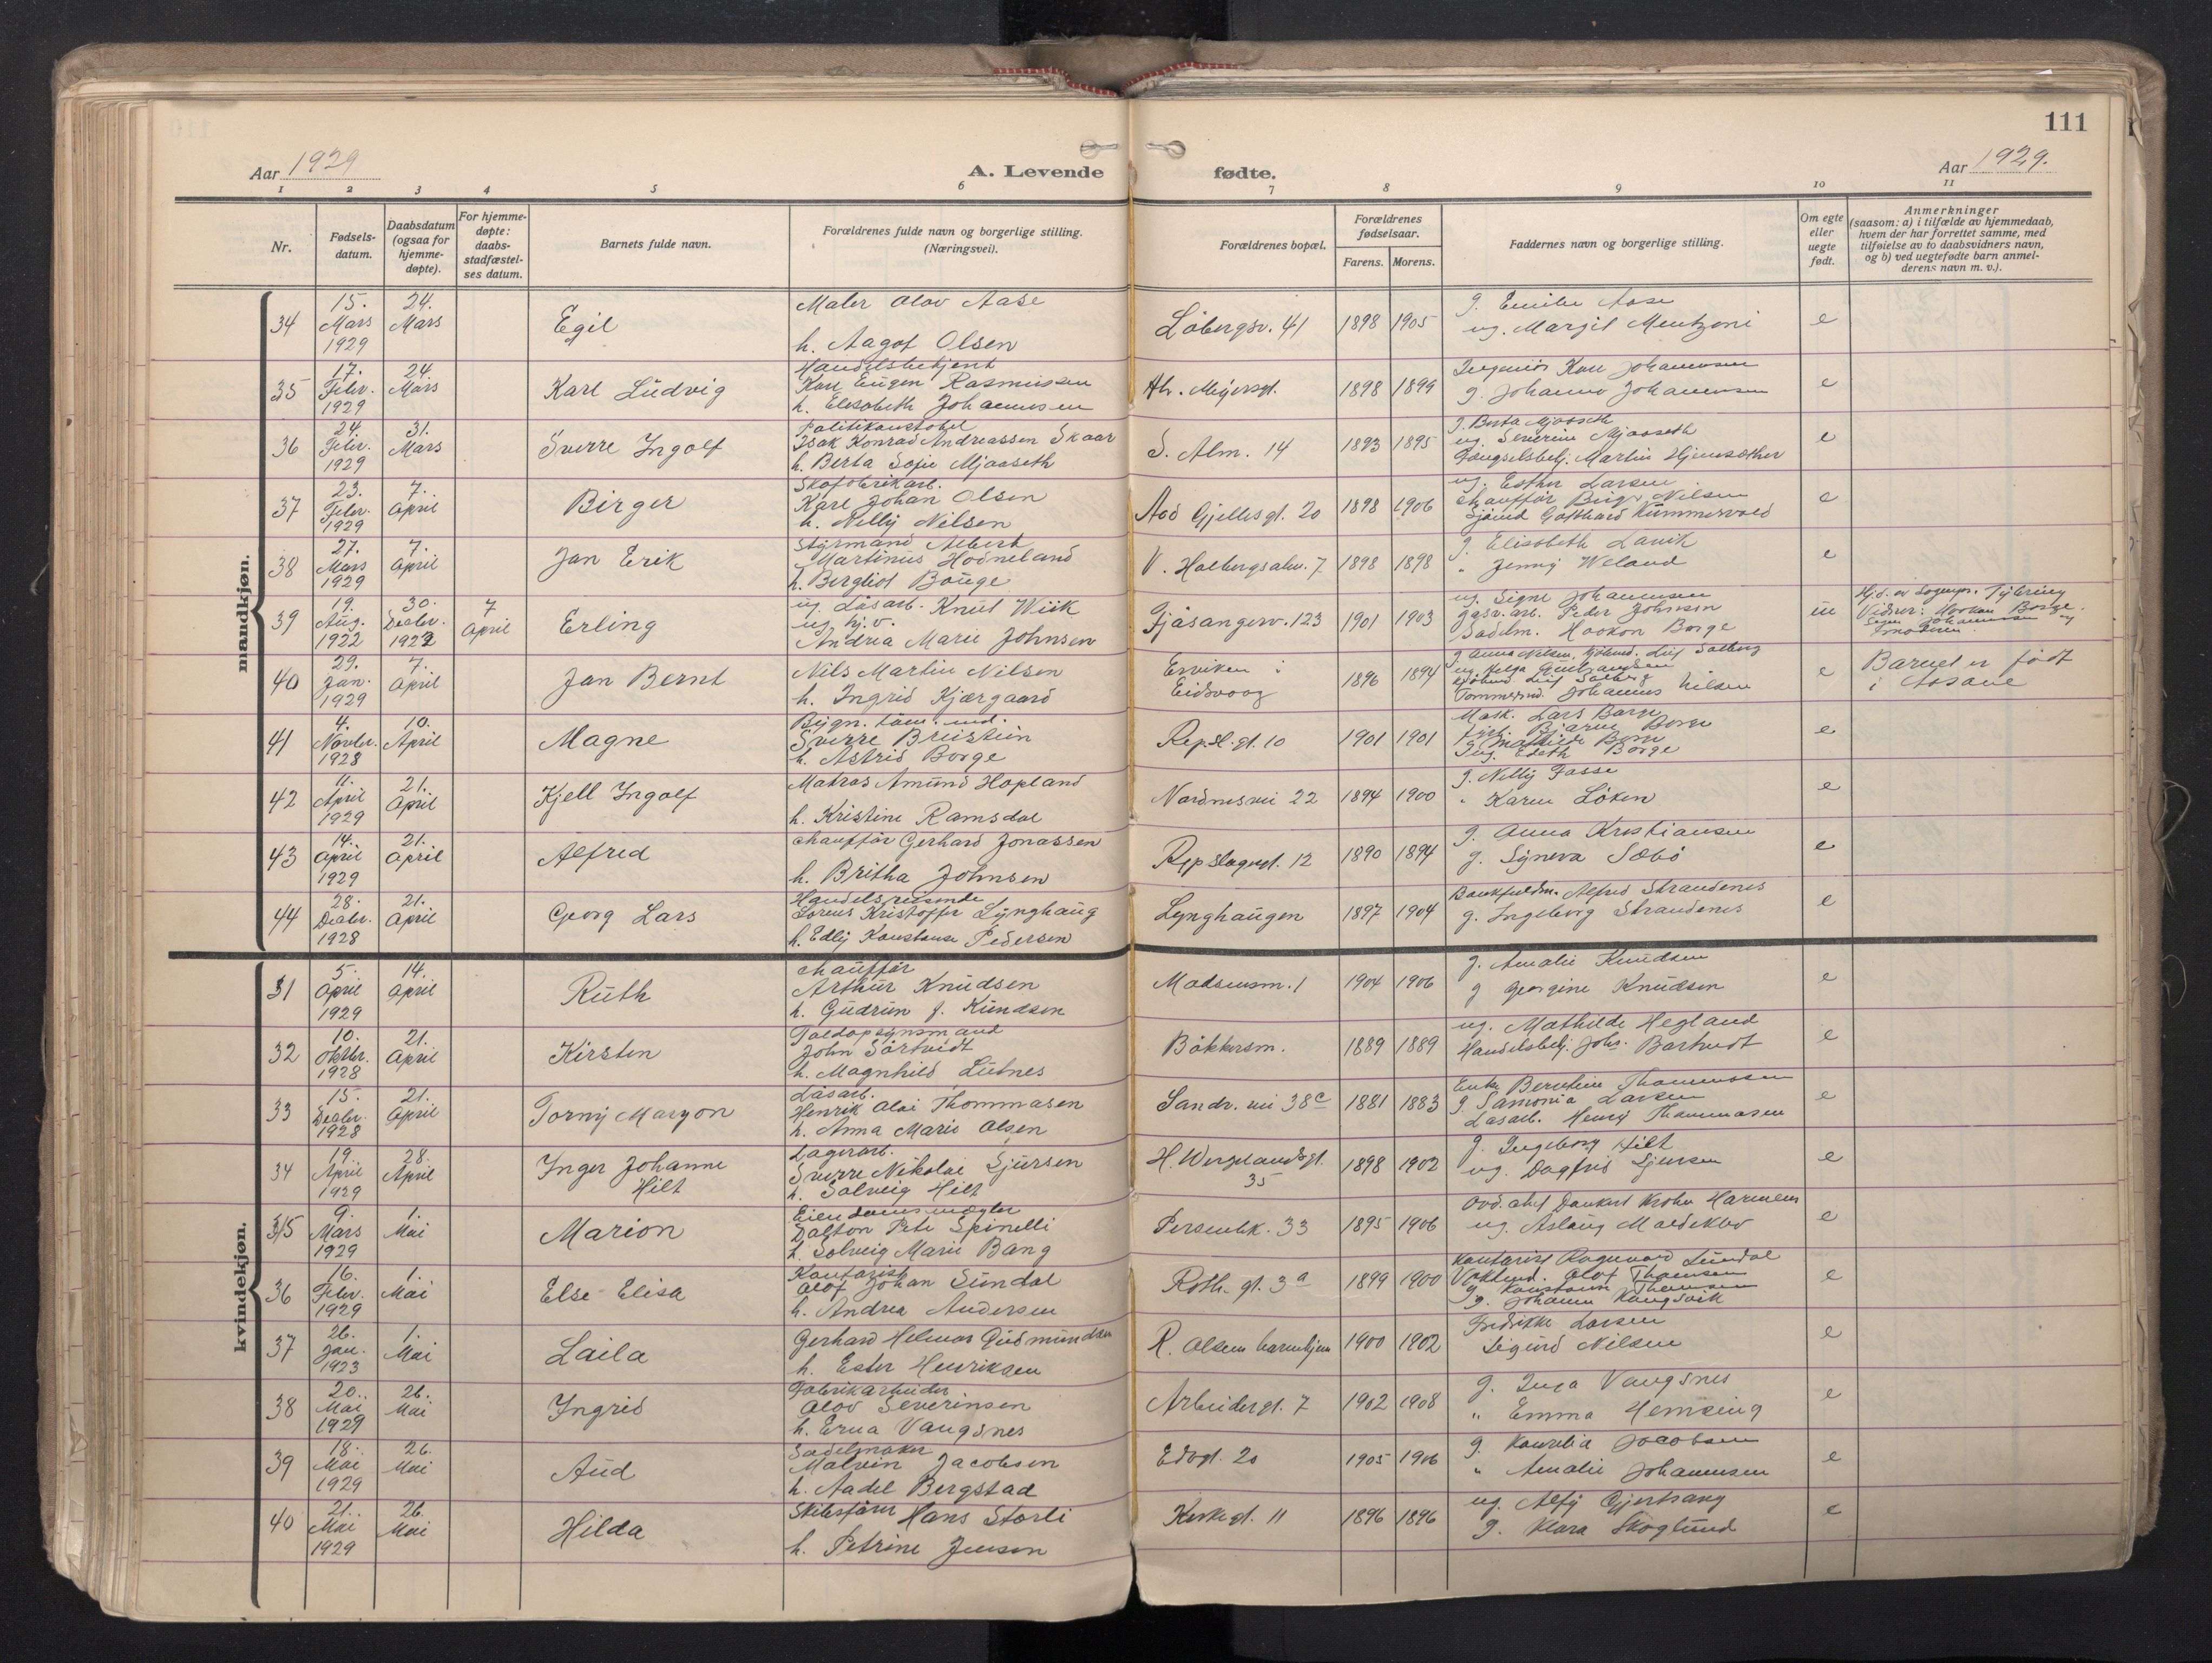 111
Aar 1929
A. Levende fødte.
Aar 1929.
1 2 3 4 5 6 7 8 9 10 11
Nr.
Fødsels-
datum.
Daabsdatum
(ogsaa for
hjemme-
døpte).
For hjemme-
døpte:
daabs-
stadfæstel-
ses datum.
Barnets fulde navn.
Forældrenes fulde navn og borgerlige stilling.
(Næringsvei).
Forældrenes bopæl.
Forældrenes
fødselsaar.
Farens. Morens.
Faddernes navn og borgerlige stilling.
Om egte
eller
uegte
født.
Anmerkninger
(saasom: a) i tilfælde av hjemmedaab,
hvem der har forrettet samme, med
tilføielse av to daabsvidners navn,
og b) ved uegtefødte barn anmel-
derens navn m. v.).
mandkjøn.
34 15. Mars 1929 24. Mars Egil
Maler Olov Aase
h. Aagot Olsen
Löbergsv. 41 1898 1905
g. Emilie Aase
ug. Margit Mentzoni
e
35 17. Febr. 1929 24. Mars Karl Ludvig
Handelsbetjent
Karl Eugen Rasmussen
h. Elisabeth Johannesen
Ah. Meyersgt. 1898 1899
Ingeniör Karl Johannesen
g. Johanne Johannesen
e
36 24. Febr. 1929 31. Mars Sverre Ingolf
Politikonstabel
Isak Konrad Andreassen Skaar
h. Berta Sofie Mjaaseth
S. Alm. 14 1893 1895
g. Berta Mjaaseth
ug. Severine Mjaaseth
Fængselsbetj. Martin Hjemsæther
e
37 23. Febr. 1929 7. April Birger
Skofabrikarb.
Karl Johan Olsen
h. Nelly Nilsen
Aad Gjellesgt. 20 1898 1906
ug. Esther Larsen
chaufför Birger Nilsen
Sjömd Gotthard Kummervold
e
38 27. Mars 1929 7. April Jan Erik
Styrmand Albert
Martinus Hodneland
h. Bergliot Bauge
V. Holbergsalm. 7 1898 1898
g. Elisabeth Lavik
" Jenny Weland
e
39 19. Aug. 1922 30. Decbr. 1922 7 April Erling
ug. Läsarb. Knut Wiik
ug. hj. v.
Andrea Marie Johnsen
Fjösangerv. 123 1901 1903
ug. Signe Johannesen
gasv. arb. Peder Johnsen
Sadelm. Haakon Borge
ue
Hj.d. av Sogнepr. Tybring
Vidner: Haakon Borge.
Signe Johannesen og
moderen.
40 29. Jan. 1929 7. April Jan Bernt
Nils Martin Nilsen
h. Ingrid Kjærgaard
Erviken i
Eidsvaag
1896 1894
Tömmermd. Johannes Nilsen
e
Barnet er født
i Aasane
41 4. Novbr. 1928 10. April Magne
Bygn. töm. md.
Sverre Breistein
h. Astrid Borge
Repsl. gt. 10 1901 1901
Mask. Lars Borge
Bjarne Borge
g. Mathilde Borge
ug. Edith Borge
e
42 11. April 1929 21. April Kjell Ingolf
Matros Amund Hopland
h. Kristine Ramsdal
Nordnesvei 22 1894 1900
g. Nelly Fasse
" Karen Löken
e
43 14. April 1929 21. April Alfred
chaufför Gerhard Jonassen
h. Britha Johnsen
Repslagergt. 12 1890 1894
g. Anna Kristiansen
g. Syneva Sæbö
e
44 28. Decbr. 1928 21. April Georg Lars
Handelsreisende
Lorens Kristoffer Lynghaug
h. Edly Konstanse Pedersen
Lynghaugen 1897 1904
Bankfuldm. Alfred Strandenes
g. Ingeborg Strandenes
e
kvindekjøn.
31 5. April 1929 14. April Ruth
chaufför
Arthur Knudsen
h. Gudrun f. Kundsen
Madsensm. 1 1904 1906
g. Amalie Knudsen
g Georgine Knudsen
e
32 10. Oktbr. 1928 21. April Kirsten
Toldopsynsmand
John Sörtveidt
h. Magnhild Lutnes
Bökkersm. 1889 1889
ug. Mathilde Hegland
Handelsbetj. Johs. Bartvedt
e
33 15. Decbr. 1928 21. April Torny Maryon
Läsarb.
Henrik Olai Thommasen
h. Anna Marie Olsen
Sandv. vei 38c 1881 1883
Enke Berntine Thommasen
g. Samonia Larsen
Lasarb. Henry Thommasen
e
34 19. April 1929 28. April Inger Johanne
Hilt
Lagerarb.
Sverre Nikolai Sjursen
h. Solveig Hilt
H. Wergelandsgt.
35
1898 1902
g. Ingeborg Hilt
ug. Dagfrid Sjursen
e
35 9. Mars 1929 1. Mai Marion
Eiendomsmægler
Dalton Pete Spinelli
h. Solveig Marie Bang
Persenbk. 33 1895 1906
Avd. chef Dankert Krohn Harmens
ug. Aslaug Maldeklev
e
36 16. Febr. 1929 1. Mai Else Elisa
Kontorist
Olof Johan Sundal
h. Andrea Andersen
Roth. gt. 3a 1899 1900
Kontorist Ragnvard Sundal
Vaktmd. Olof Thomsen
g. Konstanse Thomsen
g. Johanna Kongsvik
e
37 26. Jan. 1923 1. Mai Laila
Gerhard Helmar Gudmundsen
h. Ester Henriksen
R. Olsens barnehjem 1900 1902
Fredrikke Larsen
Sigurd Nilsen
e
38 20. Mai 1929 26. Mai Ingrid
Fabrikarbeider
Olov Severinsen
h. Erna Vangsnes
Arbeidergt. 7 1902 1908
g. Inga Vangsnes
" Emma Hemsing
e
39 18. Mai 1929 26. Mai Aud
Sadelmaker
Malvin Jacobsen
h. Aadel Bergstad
Edvgt. 20 1905 1906
g. Kornelia Jacobsen
" Amalie Johannesen
e
40 21. Mai 1929 26. Mai Hilda
Skibsförer Hans Storli
h. Petrine Jensen
Kirkegt. 11 1896 1896
ug. Alfy Gjertsang
g. Klara Skoglund
e